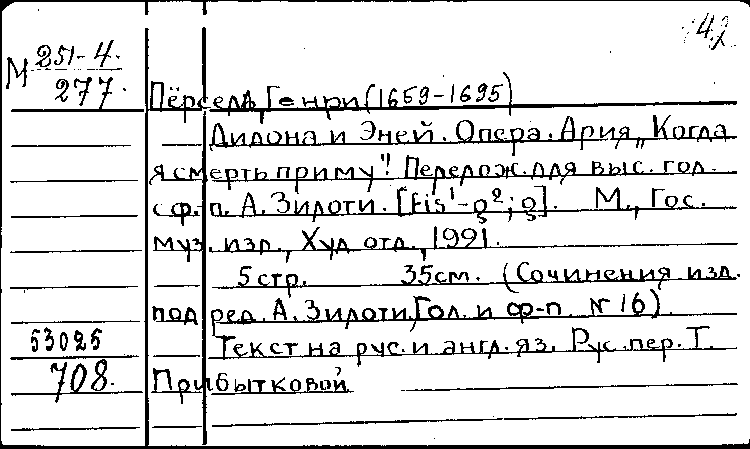 42
М 251-4.
277.
Пёрселл, Генри (1659-1695)
Дидона и Эней. Опера. Ария „Когда
я смерть приму". Перелож. для выс. гол.
с ф.-п. А. Зилоти. [fis¹-g²; g]. М., Гос.
муз. изд., Худ. отд., 1991.
5 стр. 35 см. (Сочинения изд.
под ред. А. Зилоти, Гол. и ф-п. № 16)
53025
Текст на рус. и англ. яз. Рус. пер. Т.
708. Прибытковой